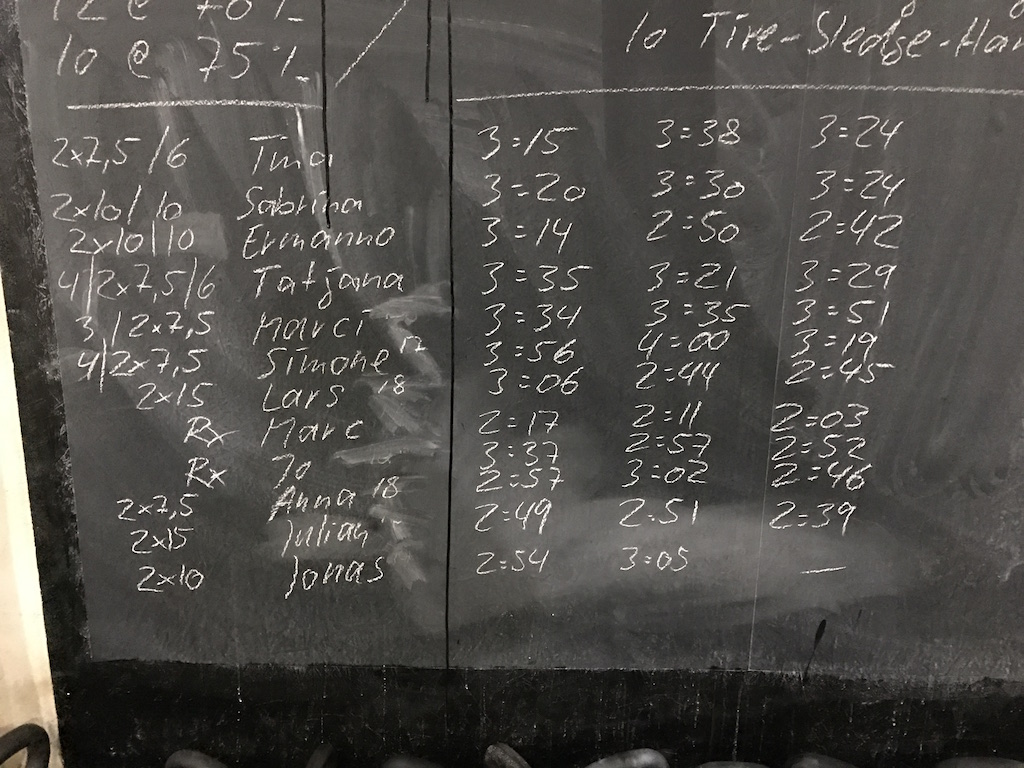 12 @ 70%
10 @ 75%
10 Tire-Sledge-Ham
2x7,5 /6 Tina 3:15 3:38 3:24
2x10/10 Sabrina 3:20 3:30 3:24
2x10/10 Ermanno 3:14 2:50 2:42
4/2x7,5/6 Tatjana 3:35 3:21 3:29
3/2x7,5 Marci 3:34 3:35 3:51
4/2x7,5 Simone 12 3:56 4:00 3:19
2x15 Lars 18 3:06 2:44 2:45
Rx Marc 2:17 2:11 2:03
Rx Jo 3:37 2:57 2:52
2x7,5 Anna 18 2:57 3:02 2:46
2x15 Julian 2:49 2:51 2:39
2x10 Jonas 2:54 3:05 —